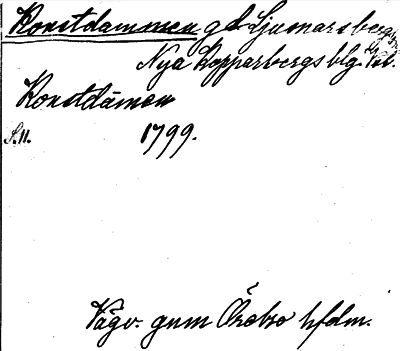 Konstdammen gd Ljusnarsberg
Nya Kopparbergs blg.
Konstdāmen
S. 11. 1799.
Vägv. gnm Örebro hfdm.